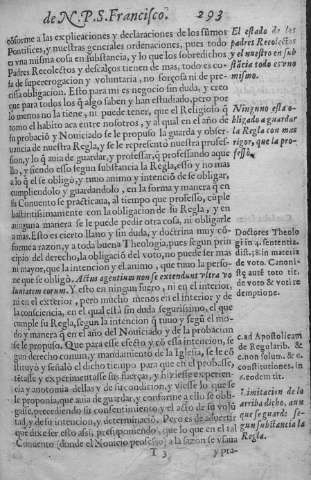 de N. P. S. Francisco. 293
cõforme a las explicaciones y declaraciones de los sũmos
Pontifices, y nuestras generales ordenaciones, pues todo
es vna misma cosa en substancia, y lo que los sobredichos
Padres Recolectos y descalços tienen de mas, todo es co-
sa de supererrogacion y voluntaria, no forçosa ni de pre-
cissa obligacion. Esto para mi es negocio sin duda, y creo
que para todos los q̃ algo saben y han estudiado, pero por
lo menos no la tiene, ni puede tener, que el Religioso q̃
tomo el habito aca entre nosotros, y al qual en el año de
su probaciõ y Nouiciado se le propuso la guarda y obser-
uancia de nuestra Regla, y se le representó nuestra profes-
sion, y lo q̃ auia de guardar, y professar, q̃ professando aque
llo, y siendo esso segun substancia la Regla, esso y no mas
a lo q̃ el se obligó, y tuuo animo y intenciõ de se obligar,
cumpliendolo y guardandolo, en la forma y manera q̃ en
su Conuento se practicaua, al tiempo que professó, cũple
bastãtissimamente con la obligacion de su Regla, y en
ninguna manera se le puede pedir otra cosa, ni obligarle
a mas. Esto es cierto llano y sin duda, y doctrina muy cõ-
forme a razon, y a toda buena Theologia, pues segun prin
cipio del derecho, la obligaciõ del voto, no puede ser mas
ni mayor, que la intencion y el animo, que tuuo la perso-
na que se obligò, Actus agentium non se extendunt vltra vo
luntatem eorum. Y esto en ningun fuero, ni en el interior,
ni en el exterior, pero mucho menos en el interior y de
la consciencia, en el qual està sin duda segurissimo, el que
cumple su Regla, segun la intencion q̃ tuuo y segũ el mo-
do y manera que en el año del Nouiciado y de la probaciõ
se le propuso. Que para esse efecto y cõ essa intencion, se
gun derecho comun, y mandamiento de la Iglesia, se le cõ
stituyó y señaló el dicho tiempo para que en el probasse,
tentasse y experimentasse sus fuerças, y hiziesse experien-
cia y anotomia dellas y de su condicion, y viesse lo que se
le proponia, que auia de guardar, y conforme a ello se obli-
gasse, precediendo su consentimiento y el acto de su volũ
tad, y de su intencion, y determinaciõ. Pero es de aduertir
que dixe ser esto assi, presuponiendo, que lo que en el tal
Conuento (donde el Nouicio professó) a la sazon se vsaua
T 3 y pra-
El estado de los
padres Recolectos
y el nuestro en sub
stãcia todo es vno
mismo.
Ninguno esta o-
bligado a guardar
la Regla con mas
rigor, que la pro-
fessò.
Doctores Theolo
gi in 4. sententia.
dist. 38. in materia
de voto. Canoni-
stę autẽ toto tit.
de voto & voti re
demptione.
c. ad Apostolicam
de Regularib. &
c. non solum. & c.
constitutionem. in
6. eodem tit.
Limitacion de lo
arriba dicho, aun
que se guarde se-
gun substancia la
Regla.